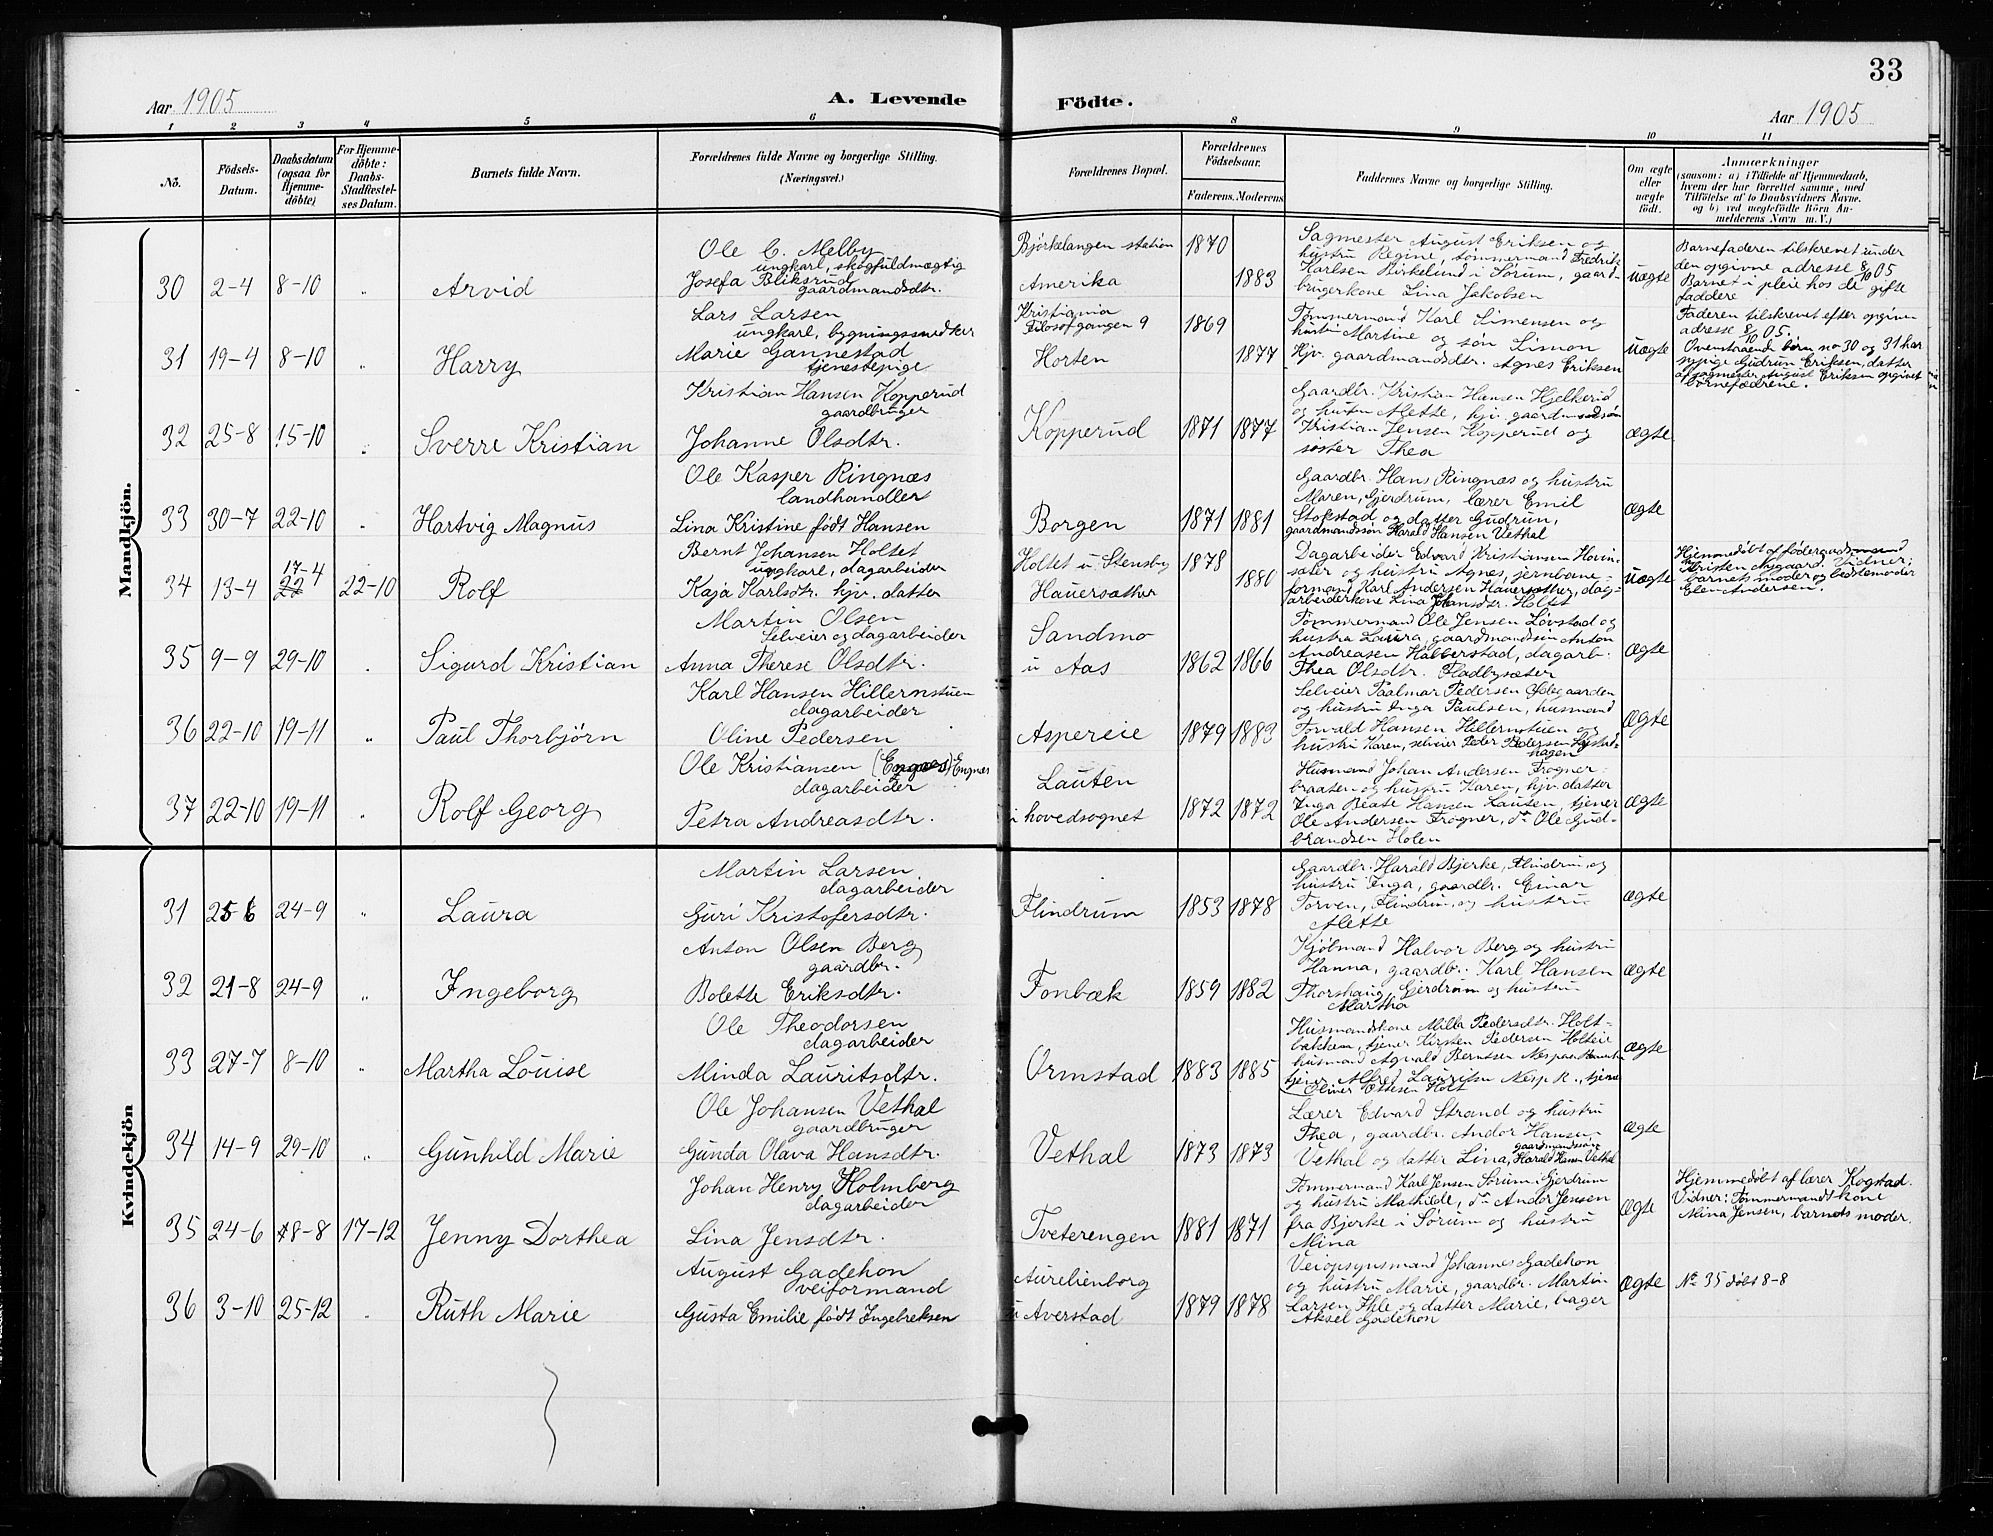 33
Aar 1905
A. Levende Födte.
Aar 1905
1 2 3 4 5 6 8 9 10 11
No.
Födsels-Datum.
Daabsdatum (ogsaa for Hjemme-döbte)
For Hjemme-döbte: Daabs-Stadfæstel-ses Datum.
Barnets fulde Navn.
Forældrenes fulde Navne og borgerlige Stilling. (Næringsvei.)
Forældrenes Bopæl.
Forældrenes Födselsaar.
Faderens. Moderens
Faddernes Navne og borgerlige Stilling.
Om ægte eller uægte født.
Anmærkninger
(saasom: a) i Tilfælde af Hjemmedaab, hvem der har forrettet samme, med Tilföielse af to Daabsvidners Navne. og b) ved uægtefödte Börn An-melderens Navn m. V.)
Mandkjön.
30 2-4 8-10 " Arvid
Ole C. Melby
ungkarl, skogfuldmægtig
Josefa Bliksrud
gaardmandsdtr.
Bjørkelangen station 1870
Amerika 1883
Sagmester August Eriksen og
hustru Regine, tømmermand Fredrik
Karlsen Birkelund i Sørum, gaard-
brugerkone Lina Jakobsen
uægte
Barnefaderen tilskrevet under
den opgivne adresse 8/10 05
Barnet i pleie hos de gifte
faddere
31 19-4 8-10 " Harry
Lars Larsen
ungkarl, bygningssnedker
Marie Gannestad
tjenestepige
Kristiania
Filosofgangen 9 1869
Horten 1877
Tømmermand Karl Simensen og
hustru Martine og søn Simon
Hjv. gaardmandsdr. Agnes Eriksen
uægte
Faderen tilskrevet efter opgiven
adresse 8/10 05.
Ovenstaaende børn no 30 og 31 har
sypige Gudrun Eriksen, datter
af sagmester August Eriksen opgivet
barnefædrene.
32 25-8 15-10 " Sverre Kristian
Kristian Hansen Kopperud
gaardbruger
Johanne Olsdtr.
Kopperud 1871 1877
Gaardbr. Kristian Hansen Hjelkerid
og hustru Mette, hjv. gaardmandssøn
Kristian Jensen Kopperud og
søster Thea
ægte
33 30-7 22-10 " Hartvig Magnus
Ole Kasper Ringnæs
landhandler
Lina Kristine født Hansen
Borgen 1871 1881
Gaardbr. Hans Ringnæs og hustru
Maren, Gjerdrum, lærer Emil
Stokstad og datter Gudrun,
gaardmandssøn Harald Hansen Vethal
ægte
34 13-4 17-4 22-10 Rolf
Bernt Johansen Holtet
ungkarl, dagarbeider
Kaja Karlsdtr. hjv. datter
Holtet u. Stensby 1878
Hauersæther 1880
Dagarbeider Edvard Kristiansen Hovin-
sæter og hustru Agnes, jernbane-
formand Karl Andersen Hauersæther, dag-
arbeiderkone Lina Johansdtr. Holtet
uægte
Hjemmedøbt af
Kristen Nygaard. Vidner:
barnets moder og bedstemoder
Elen Andersen.
35 9-9 29-10 " Sigurd Kristian
Martin Olsen
Selveier og dagarbeider
Anna Therese Olsdtr.
Sandmo
u Aas 1862 1866
Tømmermand Ole Jensen Løvstad og
hustru Laura, gaardmandssøn Anton
Andreasen Halberstad, dagarb.
Thea Olsdtr. Fladbysæter
ægte
36 22-10 19-11 " Paul Thorbjörn
Karl Hansen Hillernstuen
dagarbeider
Oline Pedersen
Aspereie 1879 1882
Selveier Paalmar Pedersen Ødegaarden
og hustru Inga Paulsen, husmand
Torvald Hansen Hillernstuen og
hustru Karen, selveier Peder Pedersen
hagen
ægte
37 22-10 19-11 " Rolf Georg
Ole Kristiansen (Engnæs) Engnæs
dagarbeider
Petra Andreasdtr.
Lauten
i hovedsognet 1872 1872
Husmand Johan Andersen Frogner-
braaten og hustru Karen, hjv. datter
Inga Beate Hansen Lauten, tjener
Ole Andersen Frogner, do Ole Gud-
brandsen Holen
ægte
Kvindekjön
31 25-6 24-9 " Laura
Martin Larsen
dagarbeider
Guri Kristofersdtr.
Flindrum 1853 1878
Gaardbr. Harald Bjerke, Flindrum, og
hustru Inga, gaardbr. Einar
Torven, Flindrum, og hustru
Mette
ægte
32 21-8 24-9 " Ingeborg
Anton Olsen Berg
gaardbr.
Bolette Eriksdtr.
Fonbæk 1859 1882
Kjølmand Halvor Berg og hustru
Hanna, gaardbr. Karl Hansen
Thorshaug, Gjerdrum og hustru
Martha
ægte
33 27-7 8-10 " Martha Louise
Ole Theodorsen
dagarbeider
Minda Lauritsdtr.
Ormstad 1883 1885
Husmandskone Milla Pedersdtr. Holt-
bakken, tjener Kirsten Pedersen Holteie
husmand Agvald Berntsen
tjener Alfred Lauritsen Nesp. k., tjener
Oliver Ottesen Holt
ægte
34 14-9 29-10 " Gunhild Marie
Ole Johansen Vethal
gaardbruger
Gunda Olava Hansdtr.
Vethal 1873 1873
Lærer Edvard Strand og hustru
Thea, gaardbr. Andor Hansen
Vethal og datter Lina, gaardmandssøn Harald Hansen Vethal
ægte
35 24-6 8-8 17-12 Jenny Dorthea
Johan Henry Holmberg
dagarbeider
Lina Jensdtr.
Tveterengen 1881 1871
Tømmermand Karl Jensen Sørum i Gjerdrum
og hustru Mathilde, do Andor Jensen
fra Bjerke i Sørum og hustru
Mina
ægte
Hjemmedøbt af lærer Kogstad.
Vidner: Tømmermandskone
Mina Jensen, barnets moder.
36 3-10 25-12 " Ruth Marie
August Gadehon
veiformand
Gusta Emilie født Ingebretsen
Aurelienborg
u Averstad 1879 1878
Veiopsynsmand Johannes Gadehon
og hustru Marie, gaardbr. Martin
Larsen Ihle og datter Marie, bager
Aksel Gadehon
ægte
No 35 døbt 8-8